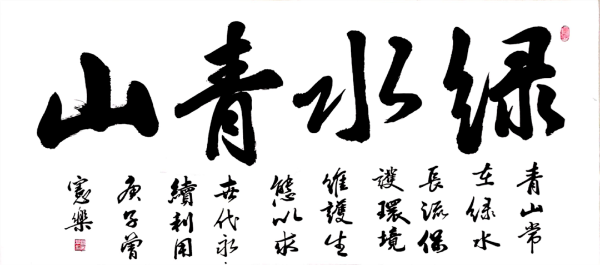 绿水青山
青山常
在绿水
長流保
護環境
維護生
態以求
世代永
續利用
庚子曾
憲樂